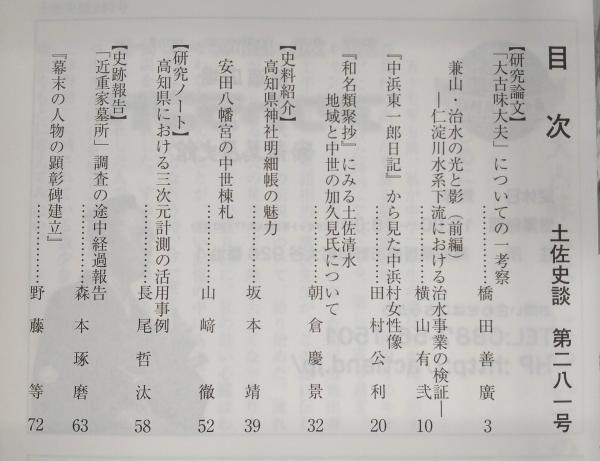 目次
土佐史談 第二八一号
【研究論文】
「大古味大夫」についての一考察
橋田善廣 3
兼山・治水の光と影（前編）
―仁淀川水系下流における治水事業の検証―
横山有弐 10
『中浜東一郎日記』から見た中浜村女性像
田村公利 20
『和名類聚抄』にみる土佐清水
地域と中世の加久見氏について
朝倉慶景 32
【史料紹介】
高知県神社明細帳の魅力
坂本靖 39
安田八幡宮の中世棟札
山﨑徹 52
【研究ノート】
高知県における三次元計測の活用事例
長尾哲汰 58
【史跡報告】
「近重家墓所」調査の途中経過報告
森本琢磨 63
『幕末の人物の顕彰碑建立』
野藤等 72